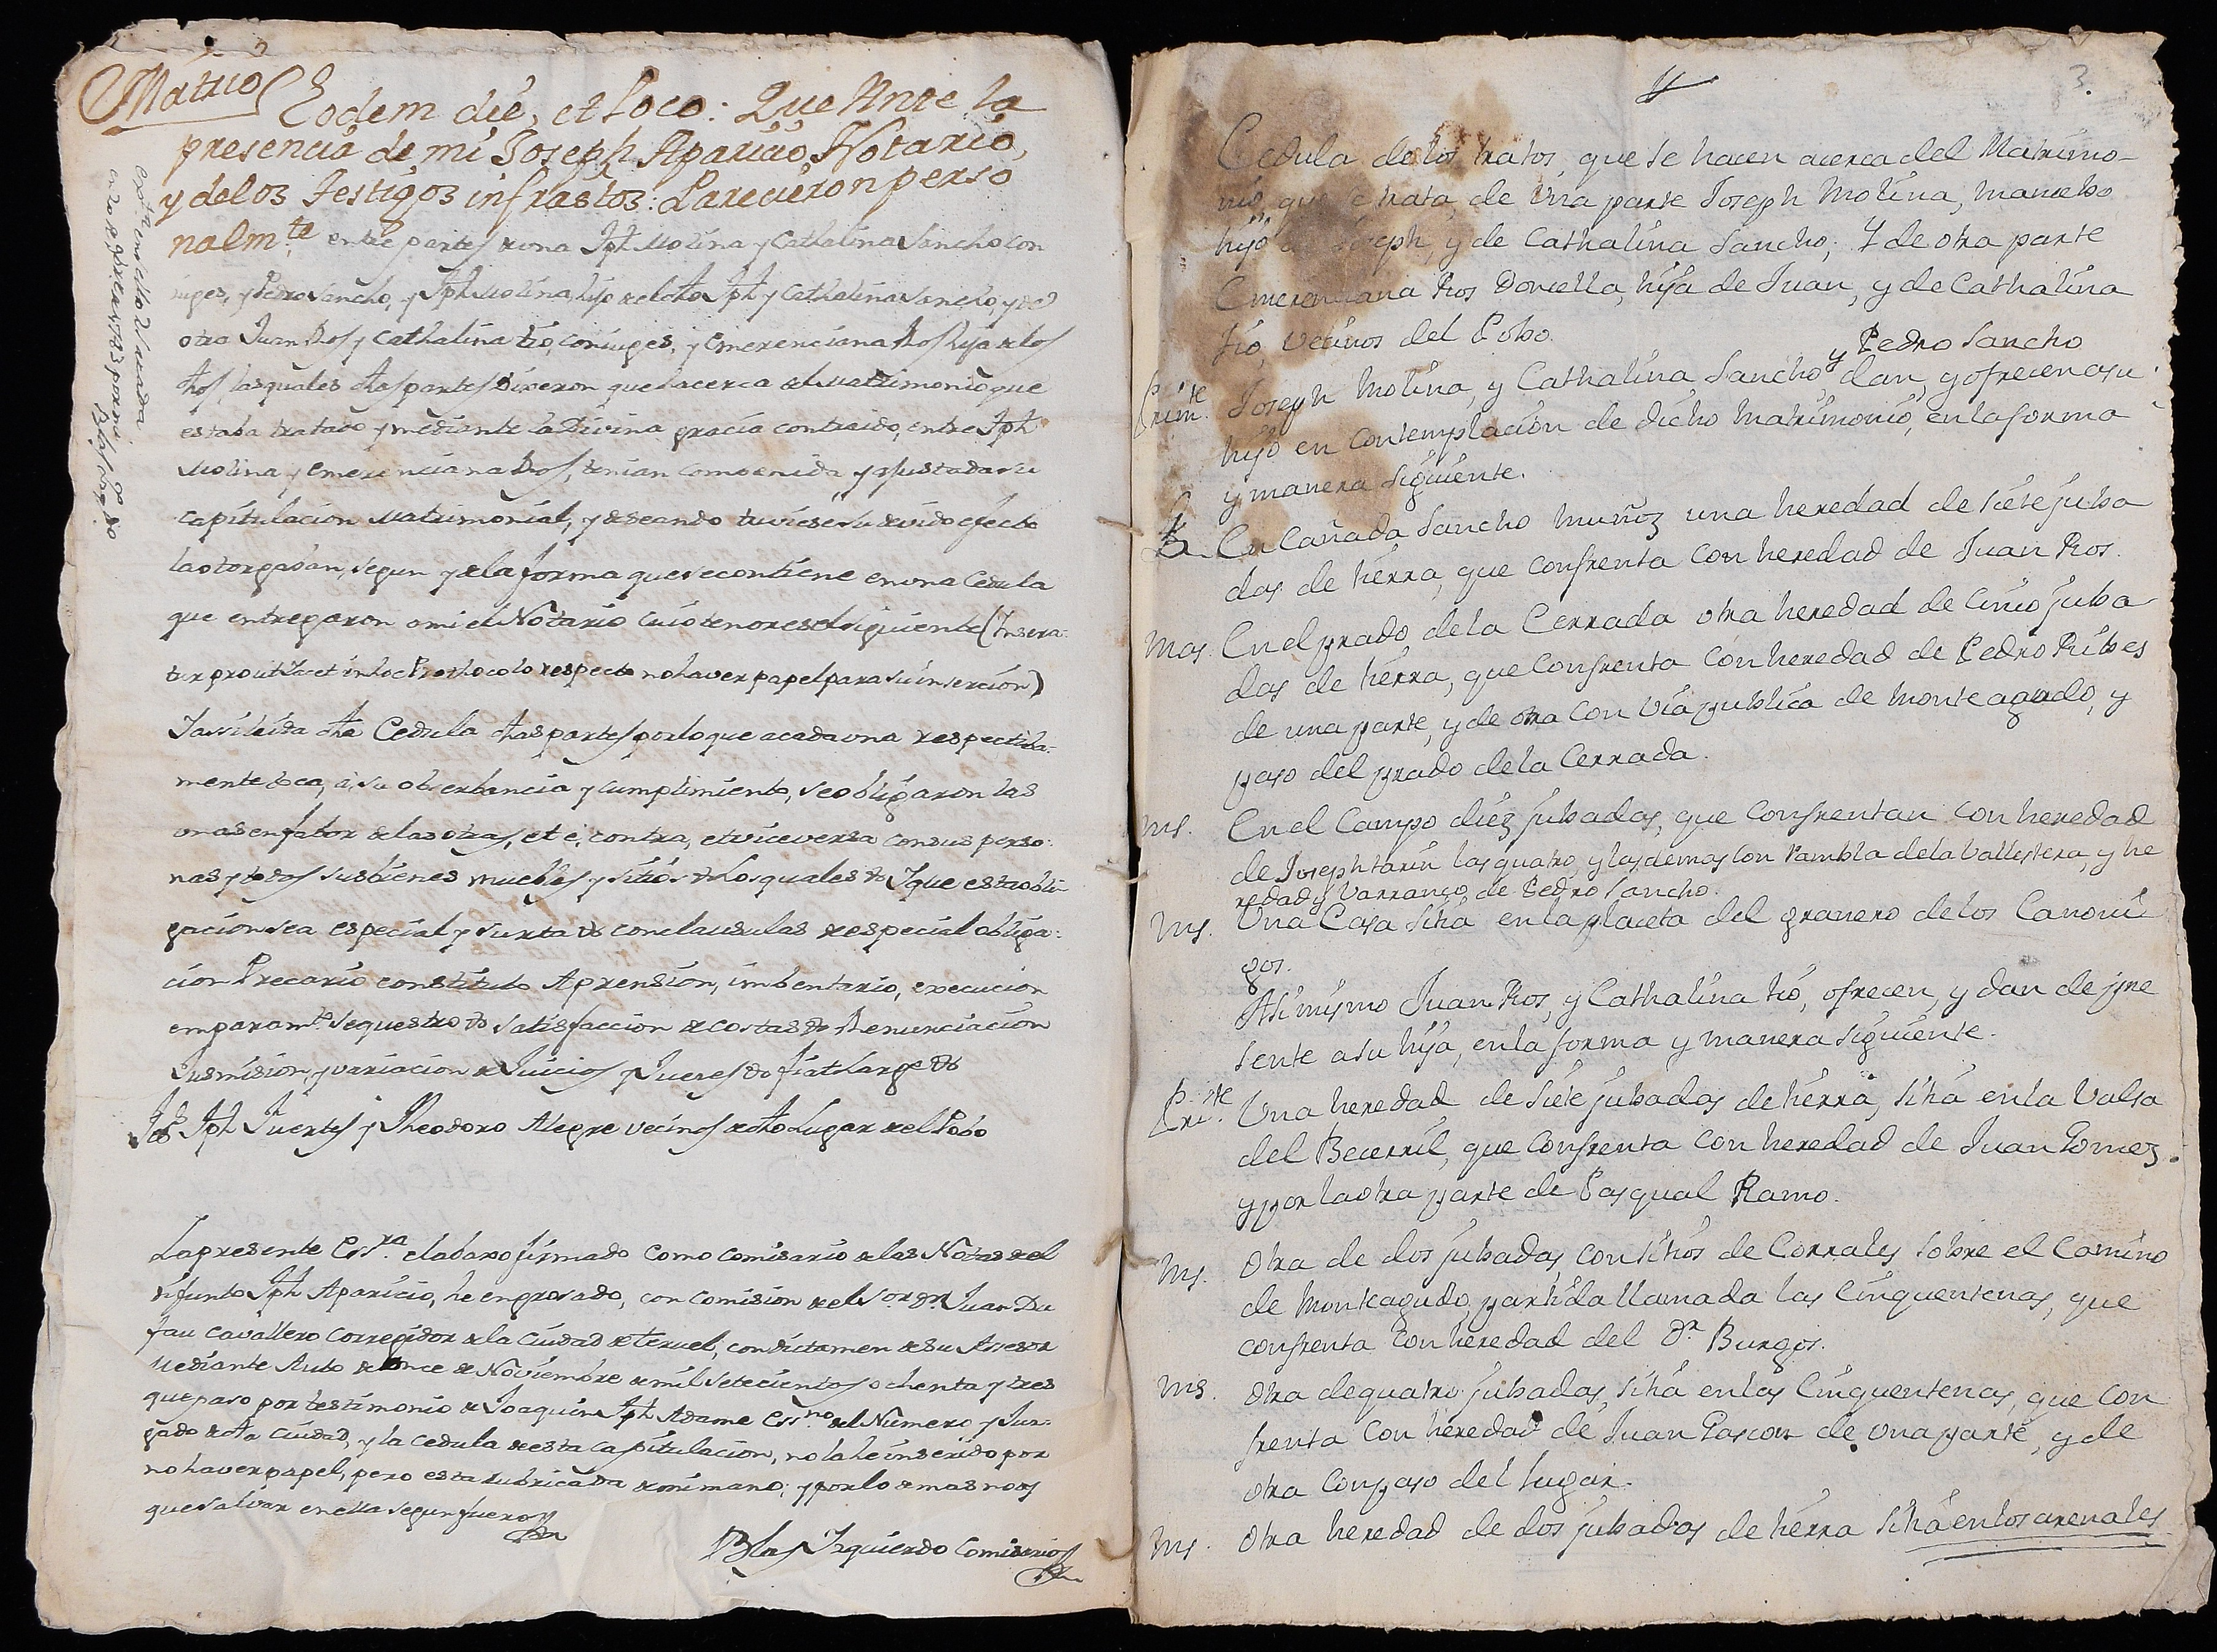 Matrio
Eodem die, et Loco: Que Ante la
presencia de mi Joseph Aparicio, Notario,
y delos Testigos infrastos: Parecieron perso
nalmte. entre partes de una Jph Molina y Cathalina Sancho con
iuges, y Pedro Sancho, y Jph Molina, hijo del dho Jph y Cathalina Sancho, y de
otra Juan Ros y Cathalina tio, coniuges, y Emerenciana Ros hija de los
dhos, las quales dhas partes Dixeron que hacerca del Matrimonio que
estaba tratado y mediante la Divina gracia contraido, entre Jph
Molina y Emerenciana Ros, tenian combenida y ajustada su
capitulacion Matrimonial, y deseando tuviese su devido efecto
la otorgaban, segun y de la forma que se contiene en una Cedula
que entregaron a mi el Notario cuio tenor es el siguiente (Insera-
tur prout Jacet in hoc Prothocolo respecto no haver papel para su insercion)
Y assi leida dha Cedula dhas partes por lo que a cada una respectiba-
mente toca, a, su obserbancia y cumplimiento, se obligaron las
unas en fabor de las otras, et è, contra, et vice versa con sus perso-
nas y todos sus bienes muebles y sitios de los quales &c Y que esta obli-
gacion sea especial y surta &c con clausulas de especial obliga-
cion Precario constituto Aprension, imbentario, execucion
emparamto. sequestro &c satisfaccion de costas &c Renunciacion
Jusmision, y variacion de Juicios y Jueces &c fiat large &c
Tgos Jph Fuertes y Theodoro Alegre vecinos de dho Lugar del Pobo
La presente Essra. el abaxo firmado como comisario de las Notas del
difunto Jph Aparicio, he engrosado, con comision del Sor. Dn. Juan Du
fau Cavallero Corregidor de la Ciudad de Teruel, con dictamen de su Assesor
Mediante Auto de once de Noviembre de mil setecientos ochenta y tres
que paso por testimonio de Joaquin Jph Adame Essno. del Numero y Juz-
gado de dha Ciudad, y la cedula de esta capitulacion, no la he inserido por
no haver papel, pero esta rubricada de mi mano; y por lo demas no ay
que salvar en ella segun fuero
Blas Yzquierdo Comisario
en 20 de 1783 por mi
Blas Yzqdo
3
Cedula de los tratos, que se hacen acerca del Matrimo-
nio, que se trata, de una parte Joseph Molina, mancebo
hijo de Joseph, y de Cathalina Sancho; Y de otra parte
Emerenciana Ros Doncella, hija de Juan, y de Cathalina
tio, Vecinos del Pobo.
y Pedro Sancho
Primte. Joseph Molina, y Cathalina Sancho dan, y ofrecen a su
hijo en contemplacion de dicho matrimonio, en la forma
y manera siguiente.
En Cañada Sancho Muñoz una heredad de siete juba
das de tierra, que confrenta con heredad de Juan Ros.
Mas. En el prado de la Cerrada otra heredad de Cinco juba-
das de tierra, que confrenta con heredad de Pedro Ribes
de una parte, y de otra con Via publica de Monteagudo, y
paso del prado de la Cerrada.
Ms. En el Campo diez jubadas, que confrentan con heredad
de Joseph tarin las quatro, y las demas con Rambla de la Vallestera, y he
redad y Varranco de Pedro Sancho.
Ms. Una Casa sita en la placeta del granero de los Canoni-
gos.
Asimismo Juan Ros, y Cathalina tio, ofrecen, y dan de pre
sente a su hija, en la forma y manera siguiente.
Primte. Una heredad de siete jubadas de tierra, sita en la Valsa
del Becerril, que confrenta con heredad de Juan Gomez.
y por la otra parte de Pasqual Ramo.
Ms. Otra de dos jubadas, con sitios de Corrales sobre el Camino
de Monteagudo, partida llamada las Cinquentenas, que
confrenta con heredad del Dr. Burgos.
Ms. Otra de quatro jubadas, sita en las Cinquentenas, que con
frenta con heredad de Juan Pascon de una parte, y de
otra con paso del lugar.
Ms. Otra heredad de dos jubadas de tierra sita en los arenales